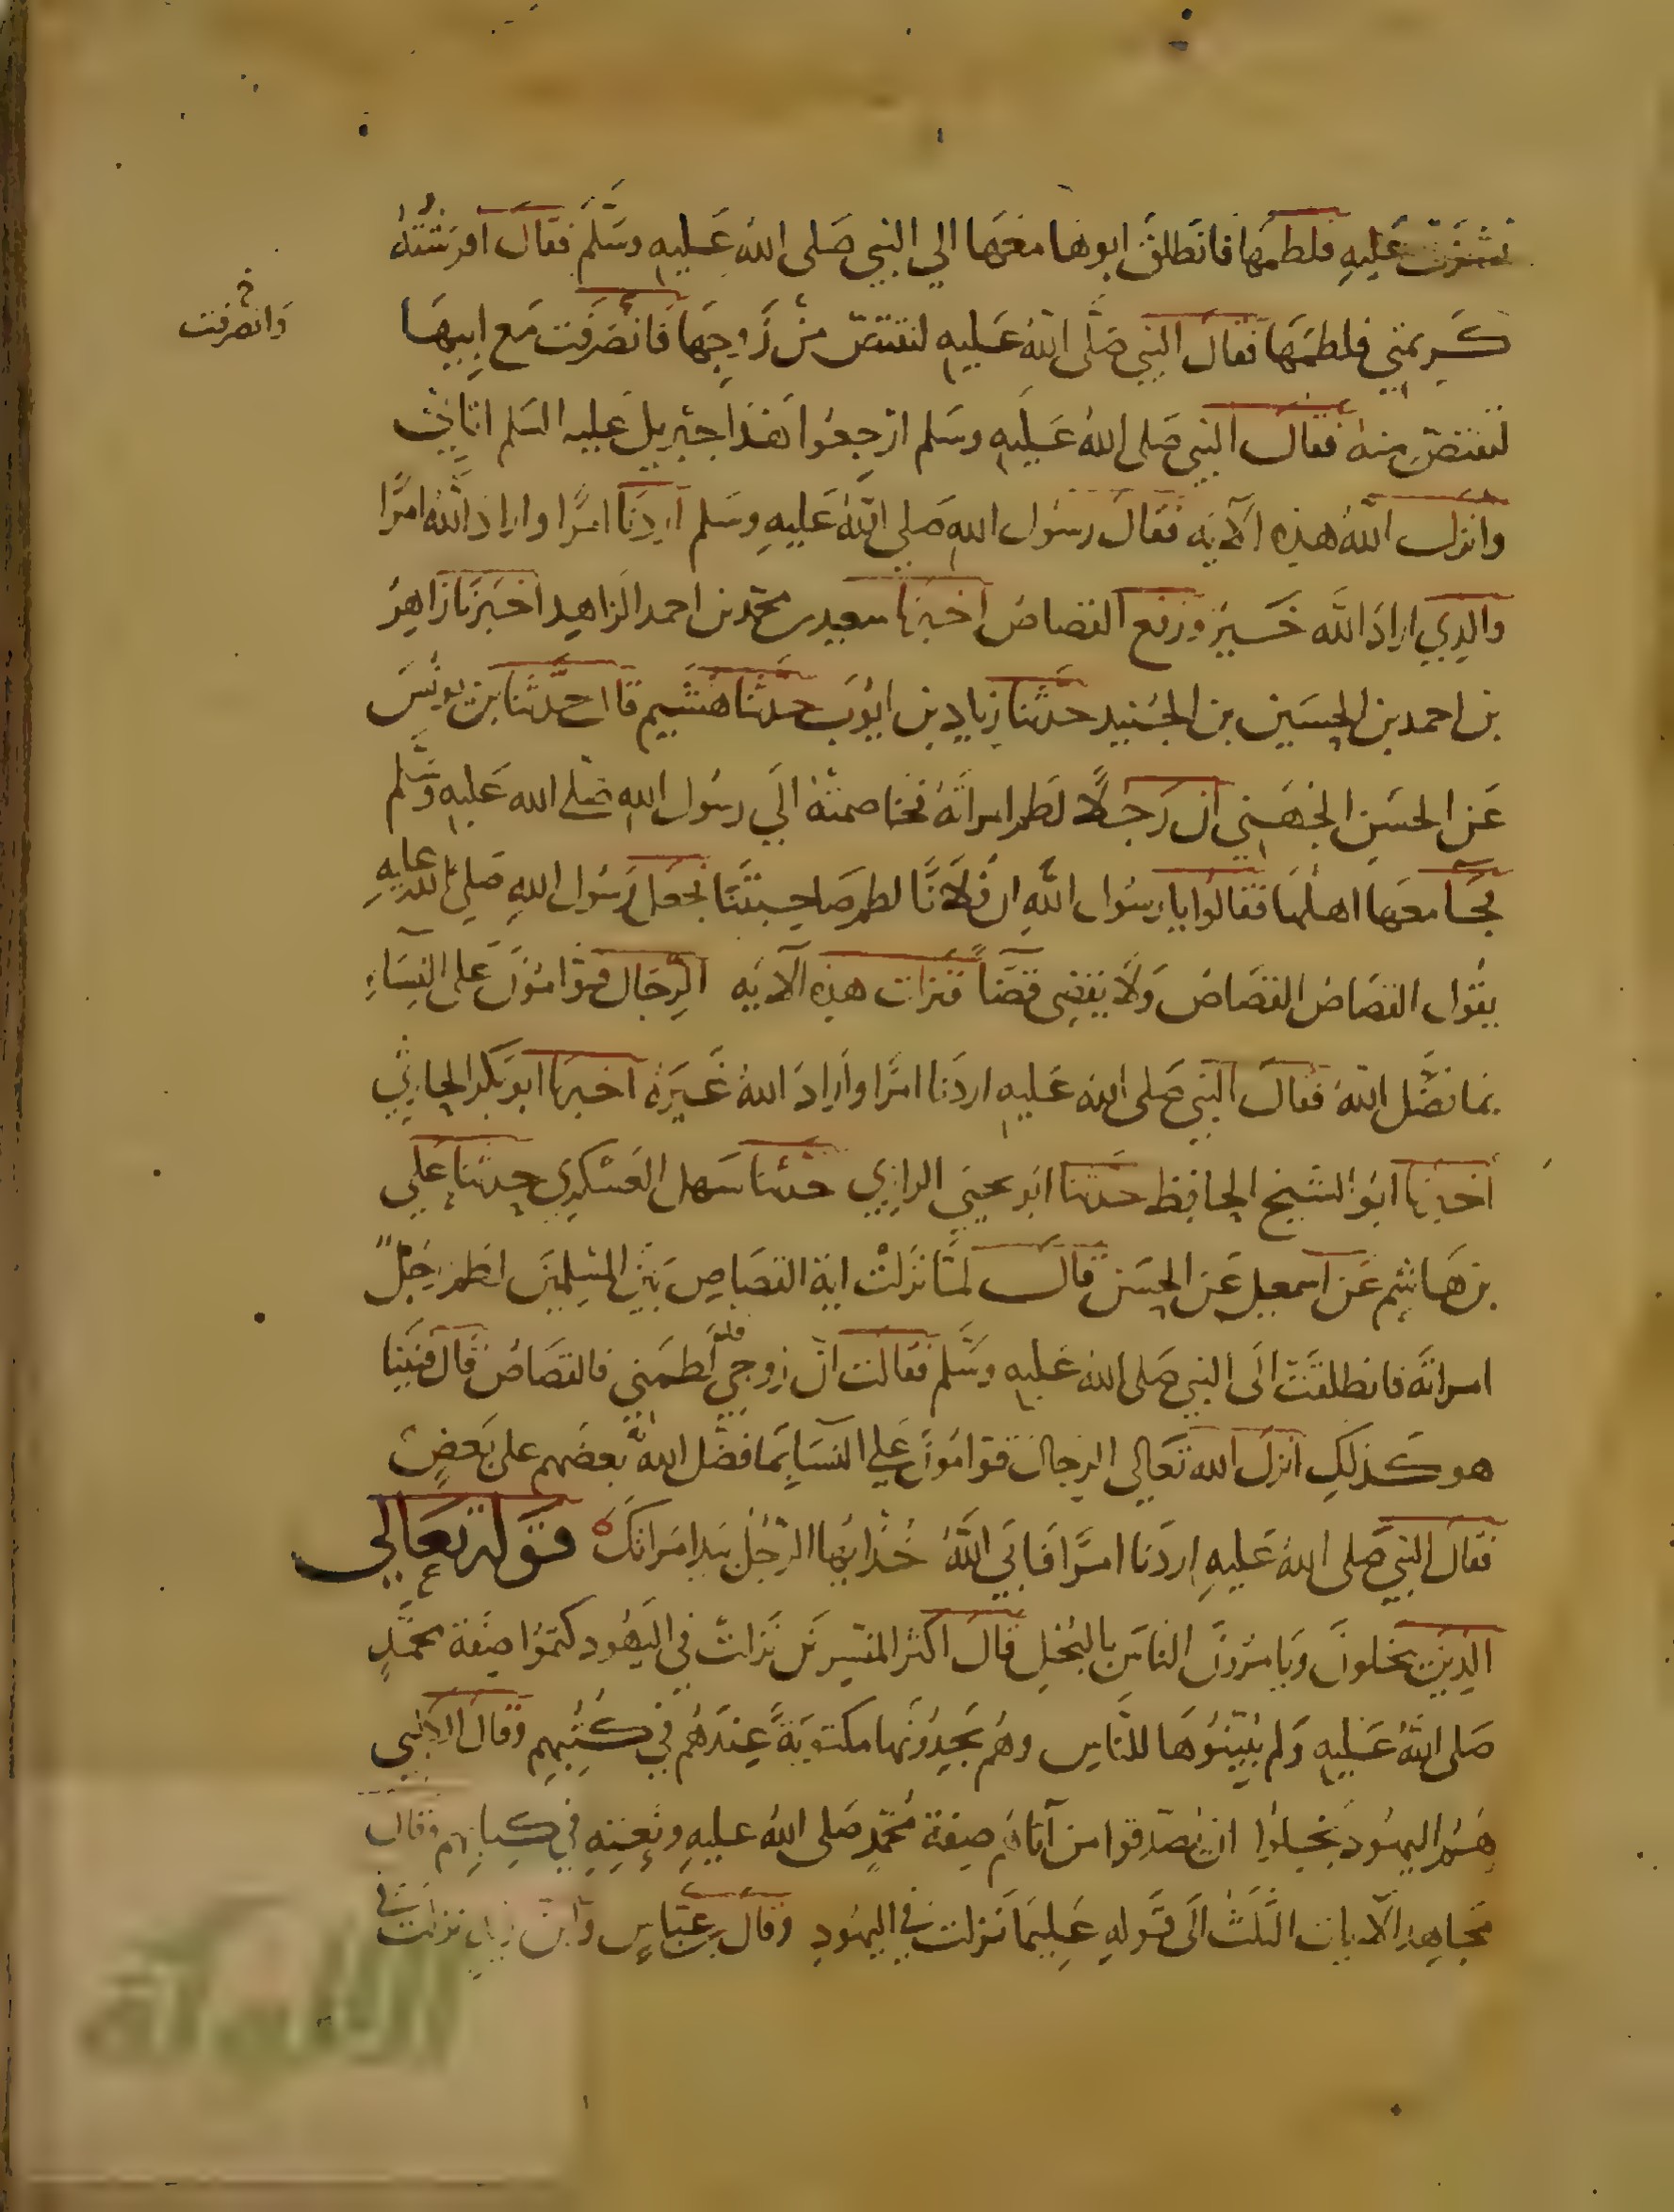 نشزت عليه فلطمها فانطلق ابوها معها الي النبي صلى الله عليه وسلم فقال افرشته
كريمتي فلطمها فقال النبي صلى الله عليه لتقتص من زوجها فانصرفت مع ابيها
وانصرفت
لتقتص منه فقال النبي صلى الله عليه وسلم ارجعوا هذا جبريل عليه السلم اتاني
وانزل الله هذه الآيه فقال رسول الله صلى الله عليه وسلم اردنا امرا واراد الله امرا
والذي اراد الله خير ورفع القصاص اخبرنا سعيد بن محمد بن احمد الزاهد اخبرنا زاهر
بن احمد بن الحسين بن الجنيد حدثنا زياد بن ايوب حدثنا هشيم قال حدثنا بن يونس
عن الحسن ان رجلا لطم امراته فخاصمته الي رسول الله صلى الله عليه وسلم
فجا معها اهلها فقالوا يا رسول الله ان فلانا لطم صاحبتنا فجعل رسول الله صلى الله عليه
يقول القصاص القصاص ولا يقضى قضا فنزلت هذه الآيه الرجال قوامون على النساء
بما فضل الله فقال النبي صلى الله عليه اردنا امرا واراد الله غيره اخبرنا ابو بكر الحارثي
اخبرنا ابو الشيخ الحافظ حدثنا ابو يحيي الرازي حدثنا سهل العسكري حدثنا علي
بن هاشم عن اسمعيل عن الحسن قال لما نزلت اية القصاص بين المسلمين لطم رجل
امراته فانطلقت الى النبي صلى الله عليه وسلم فقالت ان زوجي لطمني فالقصاص قال فبينا
هو كذلك انزل الله تعالي الرجال قوامون علي النسا بما فضل الله بعضهم على بعض
فقال النبي صلى الله عليه اردنا امرا فابي الله خذ ايها الرجل بيد امراتك قوله تعالي
الذين يبخلون ويامرون الناس بالبخل قال اكثر المفسرين نزلت في اليهود كتموا صفة محمد
صلى الله عليه ولم يبينوها للناس وهم يجدونها مكتوبة عندهم في كتبهم وقال الكلبي
هم اليهود بخلوا ان يصدقوا من آتاهم صفة محمد صلى الله عليه ونعته في كتابهم وقال
مجاهد الآيات الثلث الى قوله عليما نزلت في اليهود وقال بن عباس وابن زيد نزلت في
الألوكة